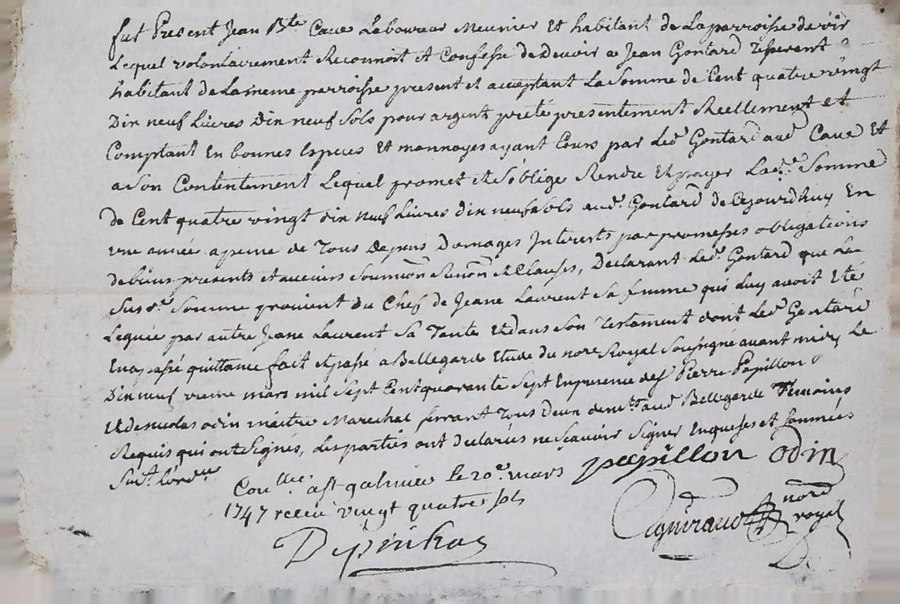 fut Present Jean Bte Cave Laboureur Meunier Et habitant de La parroisse de
Lequel volontairement Reconnoit et Confesse de Devoir a Jean Gontard
habitant de La meme parroisse present et acceptant La Somme de Cent quatre vingt
Dix neuf Livres Dix neuf Sols pour argent prêté presentement Reellement et
Comptant En bonnes Especes et monnoyes ayant Cours par Led. Gontard aud. Cave Et
a Son Contentement Lequel promet et S'oblige Rendre Et payer Lad.e Somme
de Cent quatre vingt dix neuf Livres dix neuf sols aud. Gontard de Cejourdhuy En
une année a peine de Tous Depens Domages Interets par promesses obligations
de biens presents et avenirs Soumion Renon et Clauses, Declarant Led. Gontard que La
Susd. Somme provient du Chef de Jeane Laurent Sa femme qui Luy avoit Eté
Leguée par autre Jeane Laurent Sa Tante Et dans Son Testament dont Led. Gontard
En a passé quittance fait Et passé a Bellegarde Etude du nore Royal Soussigné avant midy Le
Dix neuf vieme mars mil Sept Cent quarante Sept En presence de Pierre Papillon
Et de nicolas odin maitre Marechal ferrant Tous Deux demts aud. Bellegarde Temoins
Requis qui ont Signés, Les parties ont declarées ne Scavoir Signer Enquises et Sommées
Suivt. L'ord.ce
papillon odin
Conllé a St galmier le 20e. mars
1747 receu vingt quatre sols
nore
royal